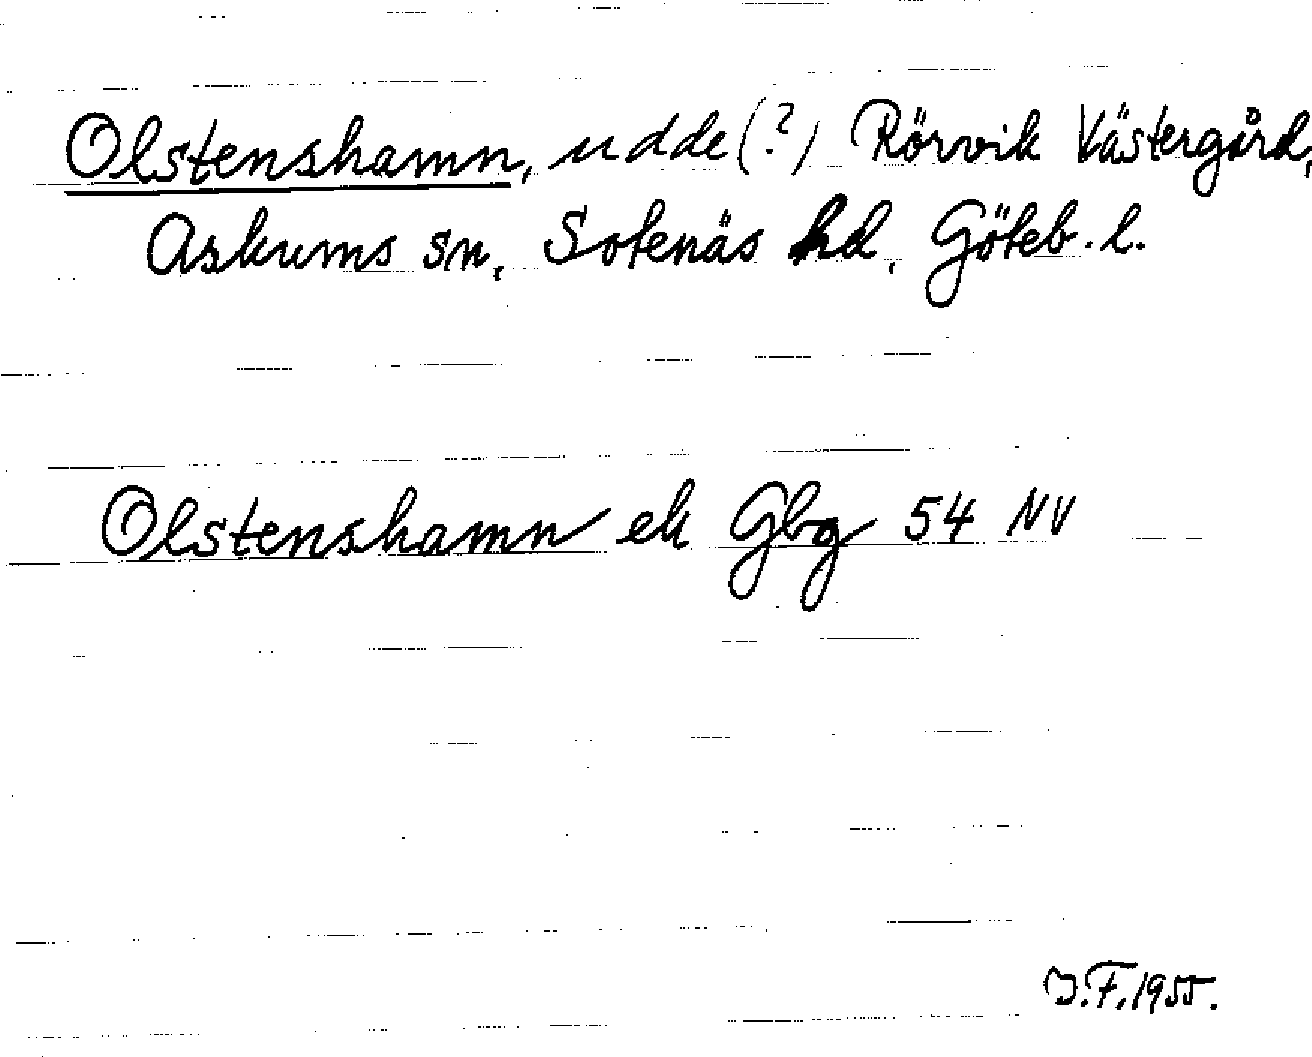 Olstenshamn, udde (?) Rörvik Västergård,
Askums sn, Sotenäs hd, Göteb. l.
Olstenshamn ek Gbg 54 NV
I.F. 1955.